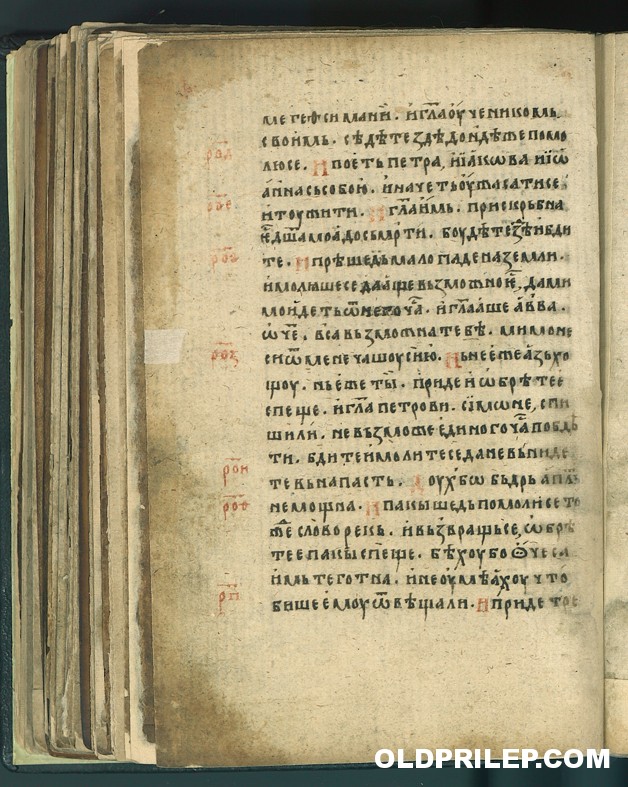 ме геѳсимании . и гла оученикомь
своимь . сѣдѣте здѣ дондѣже помо
люсе . И поеть петра , и иакѡва и иѡ
анна сь собою . и начеть оужасатисе
и тоужити . И гла имь . прискрьбна
ѥ дша моа до смрти . боудѣте зѣ и бди
те . И прѣшедь мало паде на земли .
и молꙗшесе да аще вьзможно ѥ , да ми
мои деть ѿ него ча . и глааше авва .
ѡче , вса вьзможна тебѣ . мимоне
си ѿ мене чашоу сию . Нь не еже азь хо
щоу . нь еже ты . приде и ѡбрѣте е
спеще . и гла петрови . симѡне , спи
ши ли . не вьзможе единого ча побдѣ
ти . бдите и молитесе да не вьниде
те вь напасть . Доухь бѡ бьдрь а пль
немощна . И пакы шедь помолисе то
же слово рекь . и вьзвращьсе , ѡбрѣ
те е пакы спеще . бѣхоу бо ѻчеса
имь теготна . и не оумѣахоу что
бише емоу ѿвѣщали . И приде тое
род
рое
роѕ
роз
рои
роѳ
рп
OLDPRILEP.COM